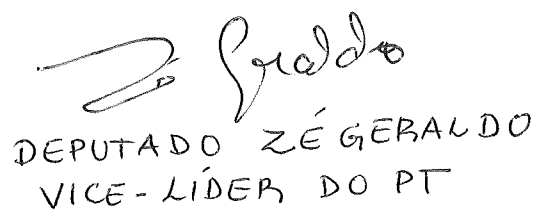 Zé Geraldo
DEPUTADO ZÉ GERALDO
VICE-LÍDER DO PT